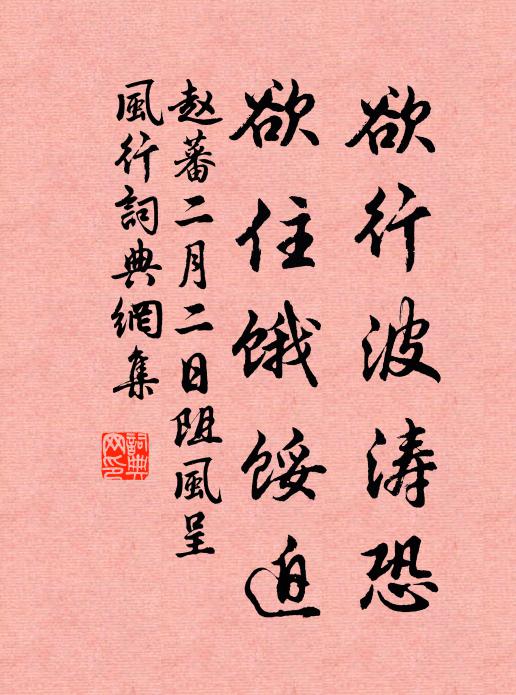 欲行波涛恐
欲住饿馁迫
赵蕃二月二日阻風呈
風行詞典網集
詞典网印